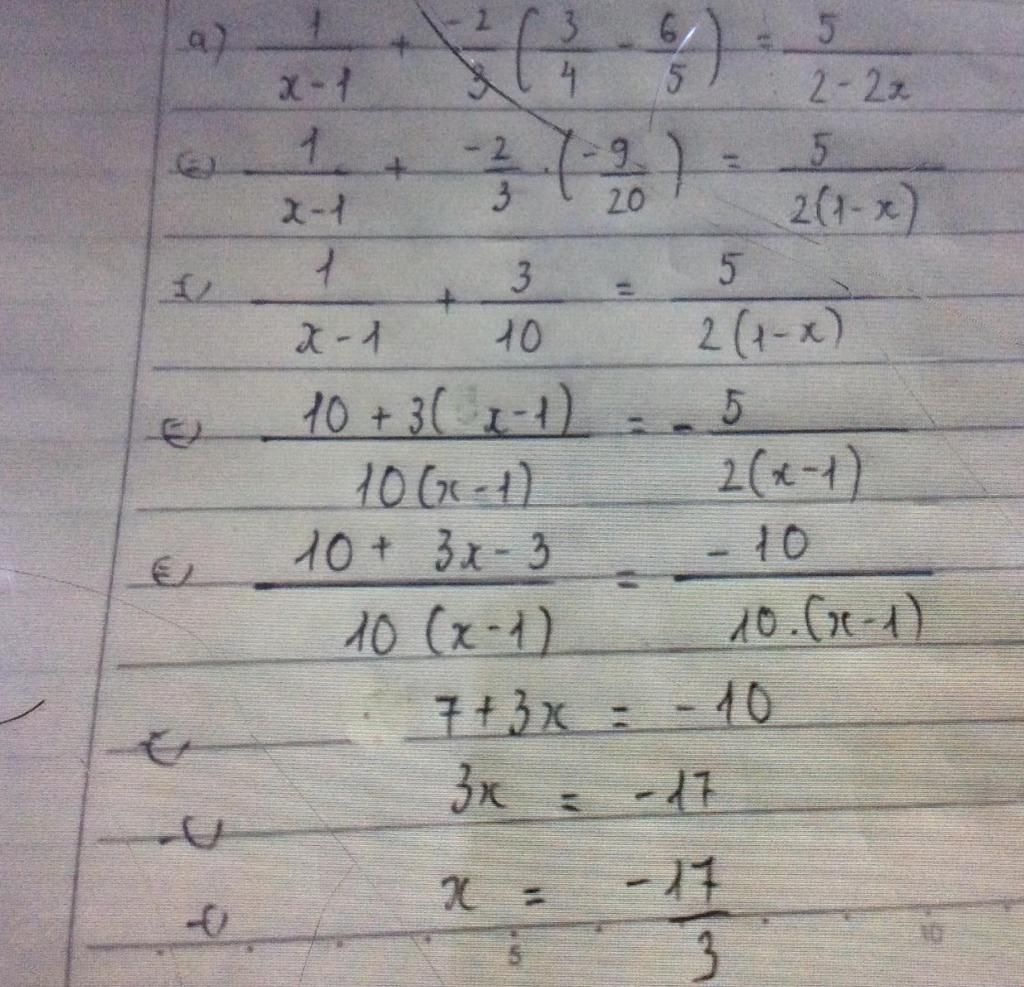 a) 1/(x-1) + -2/3 (3/4 - 6/5) = 5/(2-2x)
⇔ 1/(x-1) + -2/3 . (-9/20) = 5/(2(1-x))
⇔ 1/(x-1) + 3/10 = 5/(2(1-x))
⇔ (10 + 3(x-1))/(10(x-1)) = - 5/(2(x-1))
⇔ (10 + 3x - 3)/(10(x-1)) = -10/(10.(x-1))
⇔ 7 + 3x = -10
⇔ 3x = -17
⇔ x = -17/3
5 10